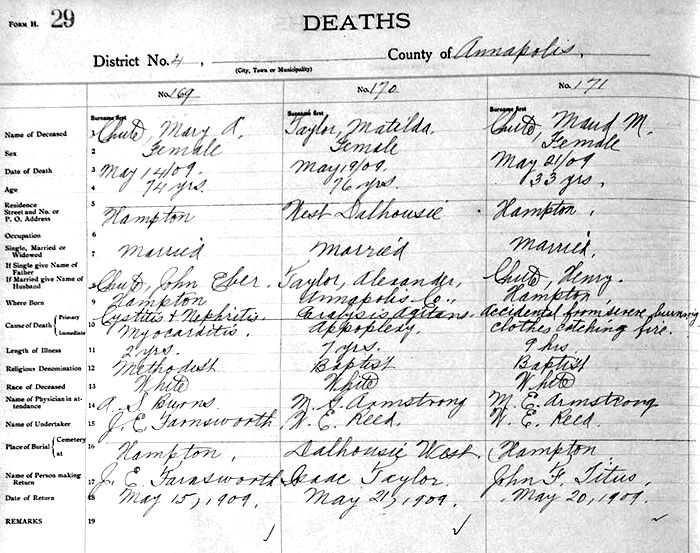 FORM H. 29
DEATHS
District No. 4, County of Annapolis.
(City, Town or Municipality)
No. 169 No. 170 No. 171
Surname first Surname first Surname first
Name of Deceased 1 Chute, Mary A. Taylor, Matilda. Chute, Maud M.
Sex 2 Female Female Female
Date of Death 3 May 14/09 May 19/09 May 21/09
Age 4 74 yrs. 76 yrs. 33 yrs.
Residence
Street and No. or
P. O. Address 5 Hampton West Dalhousie Hampton,
Occupation 6
Single, Married or
Widowed 7 Married Married Married,
If Single give Name of
Father
If Married give Name of
Husband 8 Chute, John Eber, Taylor, Alexander, Chute, Henry.
Where Born 9 Hampton Annapolis Co., Hampton,
Cause of Death Primary 10 Cystitis & Nephritis. Paralysis Agitans Accidental from severe burning
Immediate Myocarditis. Appoplexy. clothes catching fire.
Length of Illness 11 2 yrs. 7 yrs. 9 hrs.
Religious Denomination 12 Methodist Baptist Baptist
Race of Deceased 13 White White White
Name of Physician in at-
tendance 14 A. S. Burns. M. G. Armstrong M. E. Armstrong
Name of Undertaker 15 J. E. Farnsworth, W. E. Reed. W. E. Reed.
Place of Burial Cemetery
at 16 Hampton, Dalhousie West, Hampton
Name of Person making
Return 17 J. E. Farnsworth Isaac Taylor, John F. Titus,
Date of Return 18 May 15, 1909. May 21, 1909. May 20, 1909.
REMARKS 19